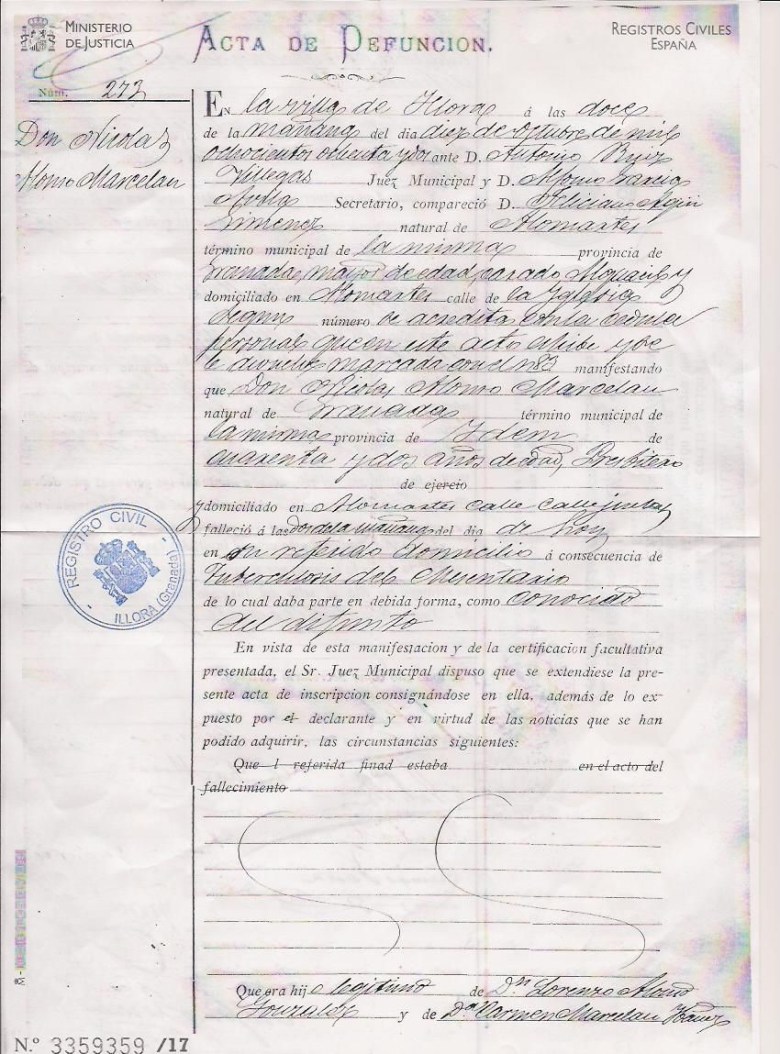 MINISTERIO
DE JUSTICIA
ACTA DE DEFUNCION.
REGISTROS CIVILES
ESPAÑA
Núm. 273
Don Nicolas
Alonso Marcelau
EN la villa de Illora á las doce
de la mañana del dia diez de octubre de mil
ochocientos ochenta y dos ante D. Antonio Ruiz
Villegas Juez Municipal y D. Alfonso Garcia
Secretario, compareció D. Feliciano
Jimenez natural de Alomartes
término municipal de la misma provincia de
Granada, mayor de edad, casado y
domiciliado en Alomartes calle de la Yglesia
número se acredita con la cedula
personal que en este acto exhibe y se
le devuelve marcada con el nº 83 manifestando
que Don Nicolas Alonso Marcelau
natural de Granada término municipal de
la misma provincia de Idem de
cuarenta y dos años de edad, Presbitero
de ejercio
y domiciliado en Alomartes calle
falleció á las dos de la mañana del dia de hoy
en su referido domicilio á consecuencia de
Tuberculosis del Mesentario
de lo cual daba parte en debida forma, como conocido
del difunto
En vista de esta manifestacion y de la certificacion facultativa
presentada, el Sr. Juez Municipal dispuso que se extendiese la pre-
sente acta de inscripcion consignándose en ella, además de lo ex-
puesto por el declarante y en virtud de las noticias que se han
podido adquirir, las circunstancias siguientes:
Que l referida finad estaba en el acto del
fallecimiento
Que era hij o legitimo de Dn Lorenzo Alonso
Gonzalez y de Dª Carmen Marcelau Ibañez
REGISTRO CIVIL
ILLORA (Granada)
N.º 3359359 /17